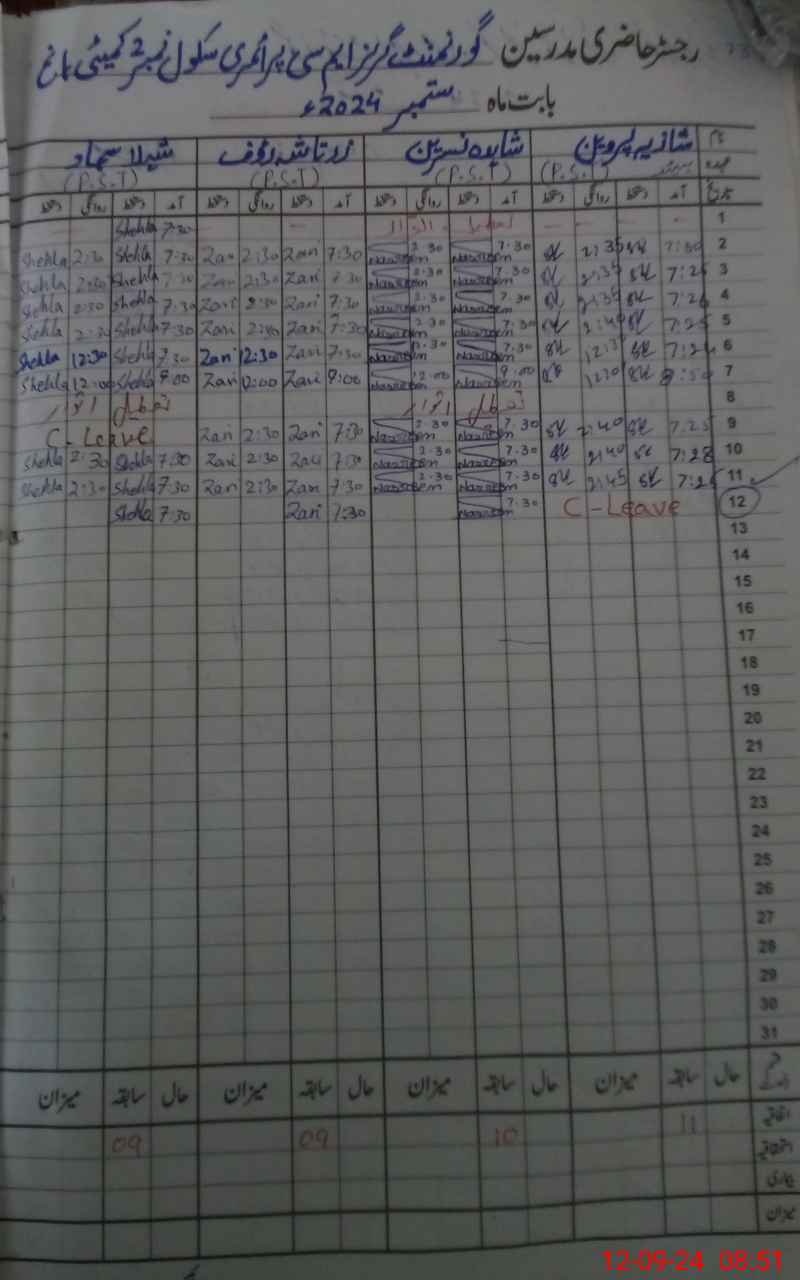 رجسٹر حاضری مدرسین گورنمنٹ گرلز ایم سی پرائمری سکول نمبر 2 کمیٹی باغ
بابت ماہ ستمبر 2024ء
نام شازیہ پروین شاہدہ نسرین زرتاشہ رؤف شہلا سجاد
عہدہ (P.S.T) (P.S.T) (P.S.T) (P.S.T)
تاریخ آمد دستخط روانگی دستخط آمد دستخط روانگی دستخط آمد دستخط روانگی دستخط آمد دستخط روانگی دستخط
1 تعطیل اتوار 7:30 Shehla
2 7:30 SK 2:35 SK 7.30 Nasreen 2.30 Nasreen 7:30 Zari 2:30 Zari 7:30 Shehla 2:30 Shehla
3 7:25 SK 2:35 SK 7.30 Nasreen 2.30 Nasreen 7:30 Zari 2:30 Zari 7:30 Shehla 2:30 Shehla
4 SK 2:35 SK 7.30 Nasreen 2.30 Nasreen 7:30 Zari 2:30 Zari 7:30 Shehla 2:30 Shehla
5 7:25 SK 2:40 SK 7.30 Nasreen 2.30 Nasreen 7:30 Zari Zari 7:30 Shehla 2:30 Shehla
6 SK SK 7.30 Nasreen 12.30 Nasreen 7:30 Zari 12:30 Zari 7:30 Shehla 12:30 Shehla
7 SK SK 9.00 Nasreen 12.00 Nasreen 9:00 Zari 12:00 Zari 9:00 Shehla 12:00 Shehla
8 تعطیل اتوار تعطیل اتوار
9 7:25 SK 2:40 SK 7.30 Nasreen 2.30 Nasreen 7:30 Zari 2:30 Zari C-Leave
10 7:28 SK 2:40 SK 7.30 Nasreen 2.30 Nasreen 7:30 Zari 2:30 Zari 7:30 Shehla 2:30 Shehla
11 SK 2:45 SK 7.30 Nasreen 2.30 Nasreen 7:30 Zari 2:30 Zari 7:30 Shehla 2:30 Shehla
12 C-Leave 7.30 Nasreen 7:30 Zari 7:30 Shehla
13
14
15
16
17
18
19
20
21
22
23
24
25
26
27
28
29
30
31
حال سابقہ میزان حال سابقہ میزان حال سابقہ میزان حال سابقہ میزان
اتفاقیہ 11 10 09 09
استحقاقیہ
بیماری
میزان
12-09-24 08.51